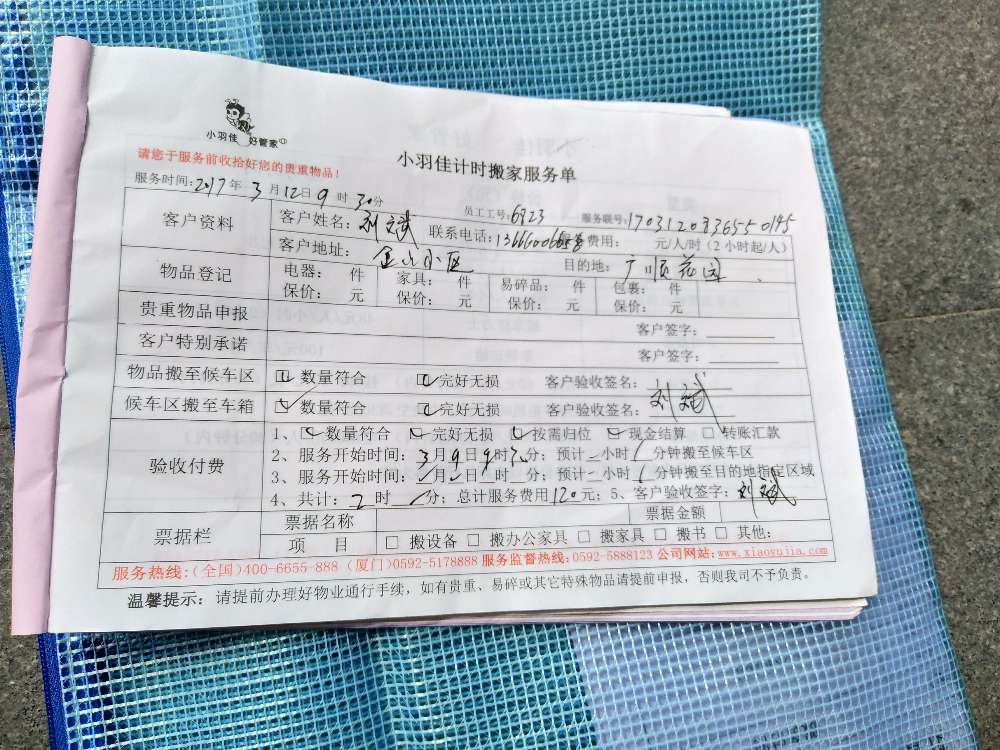 小羽佳 好管家
请您于服务前收拾好您的贵重物品!
小羽佳计时搬家服务单
服务时间:2017年3月12日9时30分 员工工号:6923 服务联号:
客户资料 客户姓名:刘文斌 联系电话: 服务费用: 元/人/时(2小时起/人)
客户地址:金山小区 目的地:广顺花园
物品登记 电器: 件 家具: 件 易碎品: 件 包裹: 件
保价: 元 保价: 元 保价: 元 保价: 元
贵重物品申报 客户签字:
客户特别承诺 客户签字:
物品搬至候车区 ☑ 数量符合 ☑ 完好无损 客户验收签名:
候车区搬至车箱 ☑ 数量符合 ☑ 完好无损 客户验收签名:刘文斌
验收付费 1、☑ 数量符合 ☑ 完好无损 ☑ 按需归位 ☑ 现金结算 □ 转账汇款
2、服务开始时间:3月9日9时 分;预计 小时 分钟搬至候车区
3、服务开始时间: 月 日 时 分;预计 小时 分钟搬至目的地指定区域
4、共计:2时 分;总计服务费用120元;5、客户验收签字:刘文斌
票据栏 票据名称 票据金额
项 目 □ 搬设备 □ 搬办公家具 □ 搬家具 □ 搬书 □ 其他:
服务热线:(全国)400-6655-888 (厦门)0592-5178888 服务监督热线:0592-5888123 公司网站:www.xiaoyujia.com
温馨提示:请提前办理好物业通行手续,如有贵重、易碎或其它特殊物品请提前申报,否则我司不予负责。